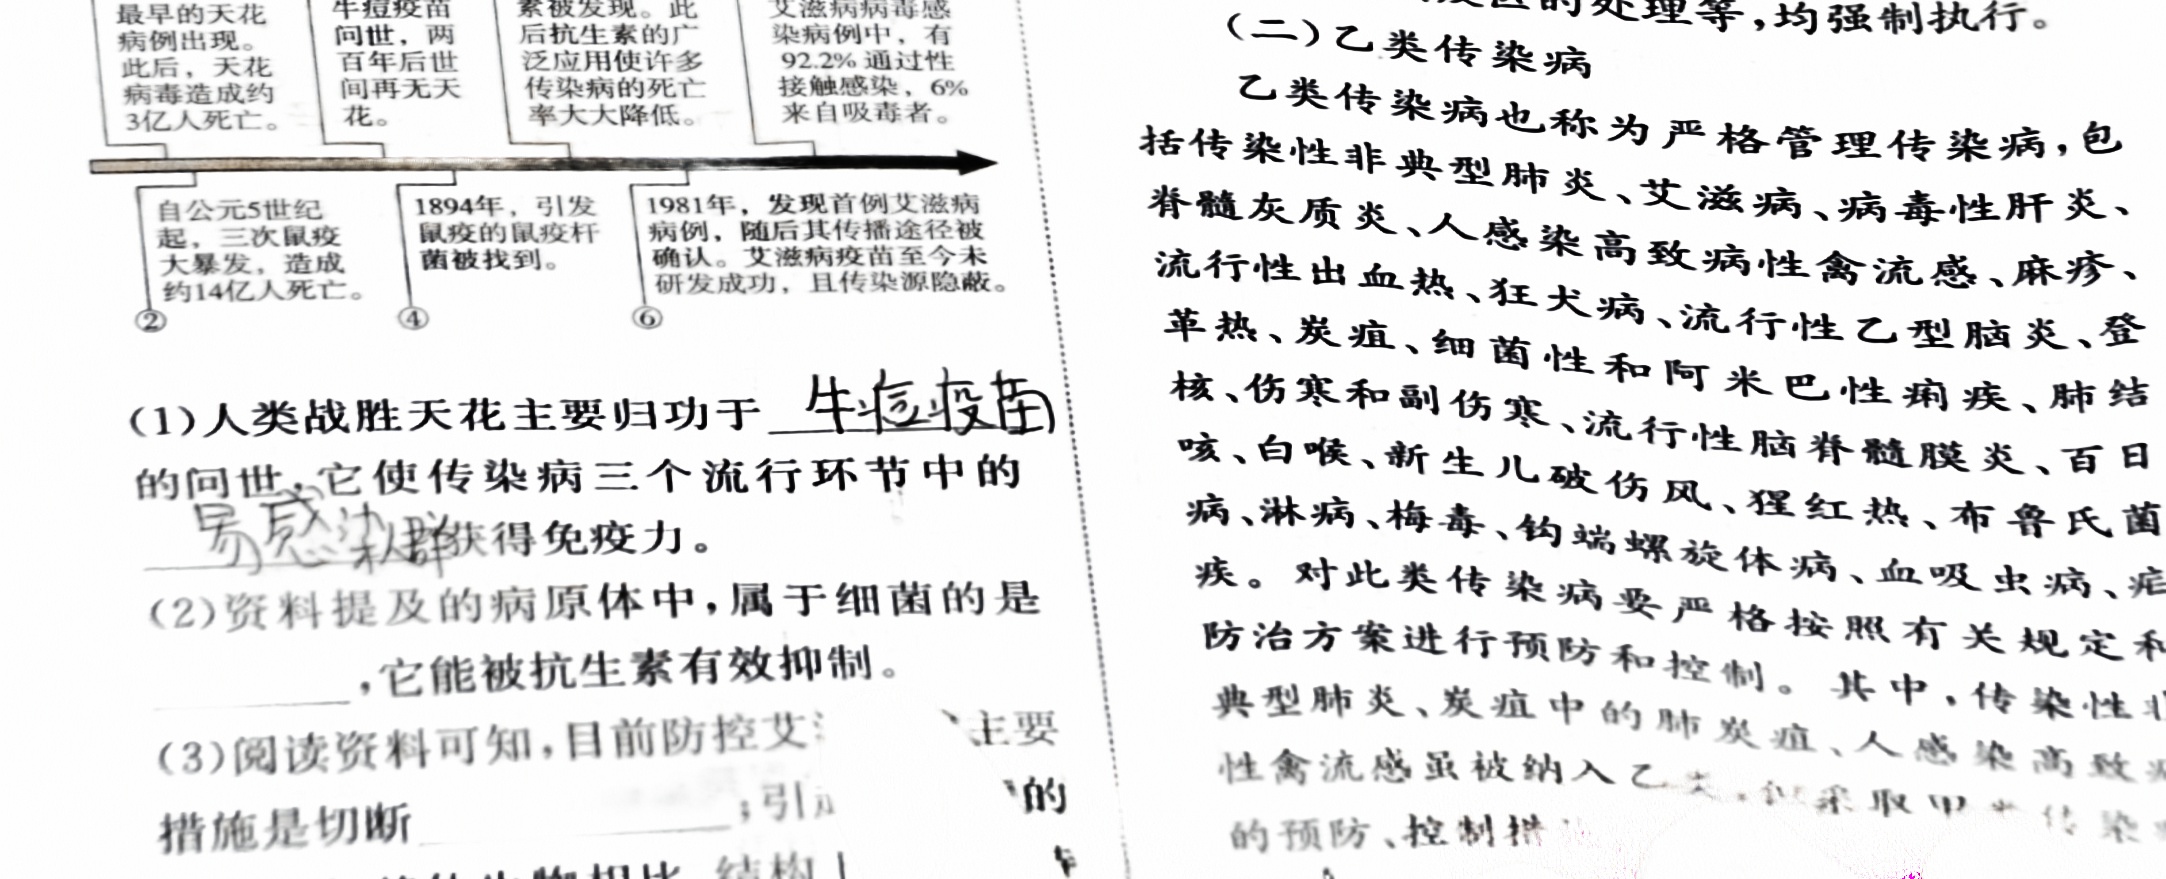 最早的天花
病例出现。
此后，天花
病毒造成约
3亿人死亡。
牛痘疫苗
问世，两
百年后世
间再无天
花。
素被发现。此
后抗生素的广
泛应用使许多
传染病的死亡
率大大降低。
艾滋病病毒感
染病例中，有
92.2%通过性
接触感染，6%
来自吸毒者。
自公元5世纪
起，三次鼠疫
大暴发，造成
约14亿人死亡。
②
1894年，引发
鼠疫的鼠疫杆
菌被找到。
④
1981年，发现首例艾滋病
病例，随后其传播途径被
确认。艾滋病疫苗至今未
研发成功，且传染源隐蔽。
⑥
(1)人类战胜天花主要归功于 牛痘疫苗
的问世，它使传染病三个流行环节中的
易感染人群获得免疫力。
(2)资料提及的病原体中，属于细菌的是
，它能被抗生素有效抑制。
(3)阅读资料可知，目前防控艾 主要
措施是切断 ；引 的
的处理等，均强制执行。
(二)乙类传染病
乙类传染病也称为严格管理传染病，包
括传染性非典型肺炎、艾滋病、病毒性肝炎、
脊髓灰质炎、人感染高致病性禽流感、麻疹、
流行性出血热、狂犬病、流行性乙型脑炎、登
革热、炭疽、细菌性和阿米巴性痢疾、肺结
核、伤寒和副伤寒、流行性脑脊髓膜炎、百日
咳、白喉、新生儿破伤风、猩红热、布鲁氏菌
病、淋病、梅毒、钩端螺旋体病、血吸虫病、疟
疾。对此类传染病要严格按照有关规定和
防治方案进行预防和控制。其中，传染性非
典型肺炎、炭疽中的肺炭疽、人感染高致病
性禽流感虽被纳入乙 采取甲 传染
的预防、控制措